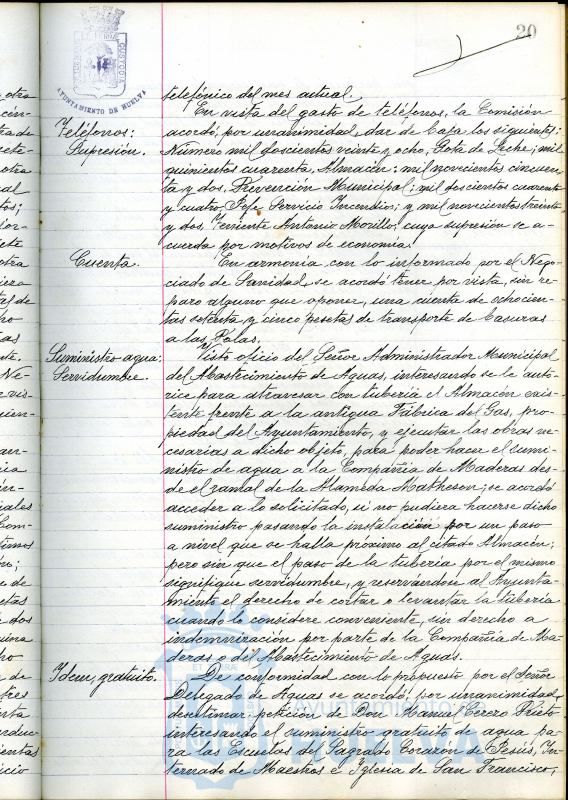 20
AYUNTAMIENTO DE HUELVA
telefónico del mes actual.
Teléfonos:
Supresión.
En vista del gasto de teléfonos, la Comisión
acordó, por unanimidad, dar de baja los siguientes:
Número mil doscientos veinte y ocho, Gota de Leche; mil
quinientos cuarenta, Almacén; mil novecientos cincuen-
ta y dos, Prevención Municipal; mil doscientos cuarenta
y cuatro, Jefe Servicio Incendio; y mil novecientos treinta
y dos, Teniente Antonio Morillo; cuya supresión se a-
cuerda por motivos de economía.
Cuenta.
En armonía con lo informado por el Nego-
ciado de Sanidad, se acordó tener por vista, sin re-
paro alguno que oponer, una cuenta de ochocien-
tas setenta y cinco pesetas de transporte de basuras
a las Polas.
Suministro agua:
Servidumbre.
Visto oficio del Señor Administrador Municipal
del Abastecimiento de Aguas, interesando se le auto-
rice para atravesar con tubería el Almacén exis-
tente frente a la antigua Fábrica del Gas, pro-
piedad del Ayuntamiento, y ejecutar las obras ne-
cesarias a dicho objeto, para poder hacer el sumi-
nistro de agua a la Compañía de Maderas des-
de el ramal de la Alameda Matheson; se acordó
acceder a lo solicitado, si no pudiera hacerse dicho
suministro pasando la instalación por un paso
a nivel que se halla próximo al citado Almacén;
pero sin que el paso de la tubería por el mismo
signifique servidumbre, y reservándose al Ayunta-
miento el derecho de cortar o levantar la tubería
cuando lo considere conveniente, sin derecho a
indemnización por parte de la Compañía de Ma-
deras o del Abastecimiento de Aguas.
Idem, gratuito.
De conformidad con lo propuesto por el Señor
Delegado de Aguas se acordó, por unanimidad,
desestimar petición de Don Manuel Cerero Prieto
interesando el suministro gratuito de agua pa-
ra las Escuelas del Sagrado Corazón de Jesús, In-
ternado de Maestros e Iglesia de San Francisco,
Ayuntamiento de
HUELVA